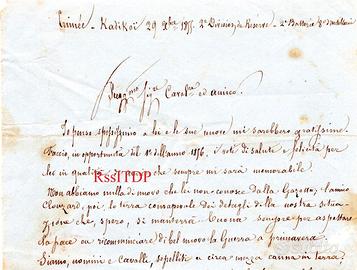 Crimée - Kadikoï 29 Xbre 1855. 2a Divisione, da Reserve - 2a Batteria 8a d'artillerie
Pregmo Sigr Cavalre ed amico.
Io penso spessissimo a lei e le sue nuove mi sarebbero gratissime.
Faccio, in opportunità del 1° dell'anno 1856, i voti di salute e felicità per
lei in qualità che sempre mi sarà memorabile.
RssITDP
Non abbiamo nulla di nuovo che lei non conosce dalla Gazzetta, l'amico
Clouzard, poi la terrà consapevole dei dettagli della nostra situa
zione che, spero, si manterrà buona sempre per aspettare
la pace o ricominciare di bel nuovo la Guerra a primavera.
Siamo, uomini e Cavalli, sepolti a circa mezza canna in terra